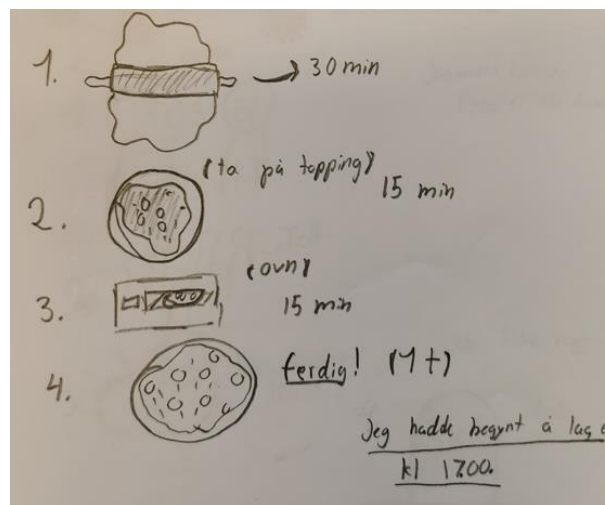 1. → 30 min
(ta på topping)
2. 15 min
(ovn)
3. 15 min
4. ferdig! (1 t)
Jeg hadde begynt å lag
kl 1700.